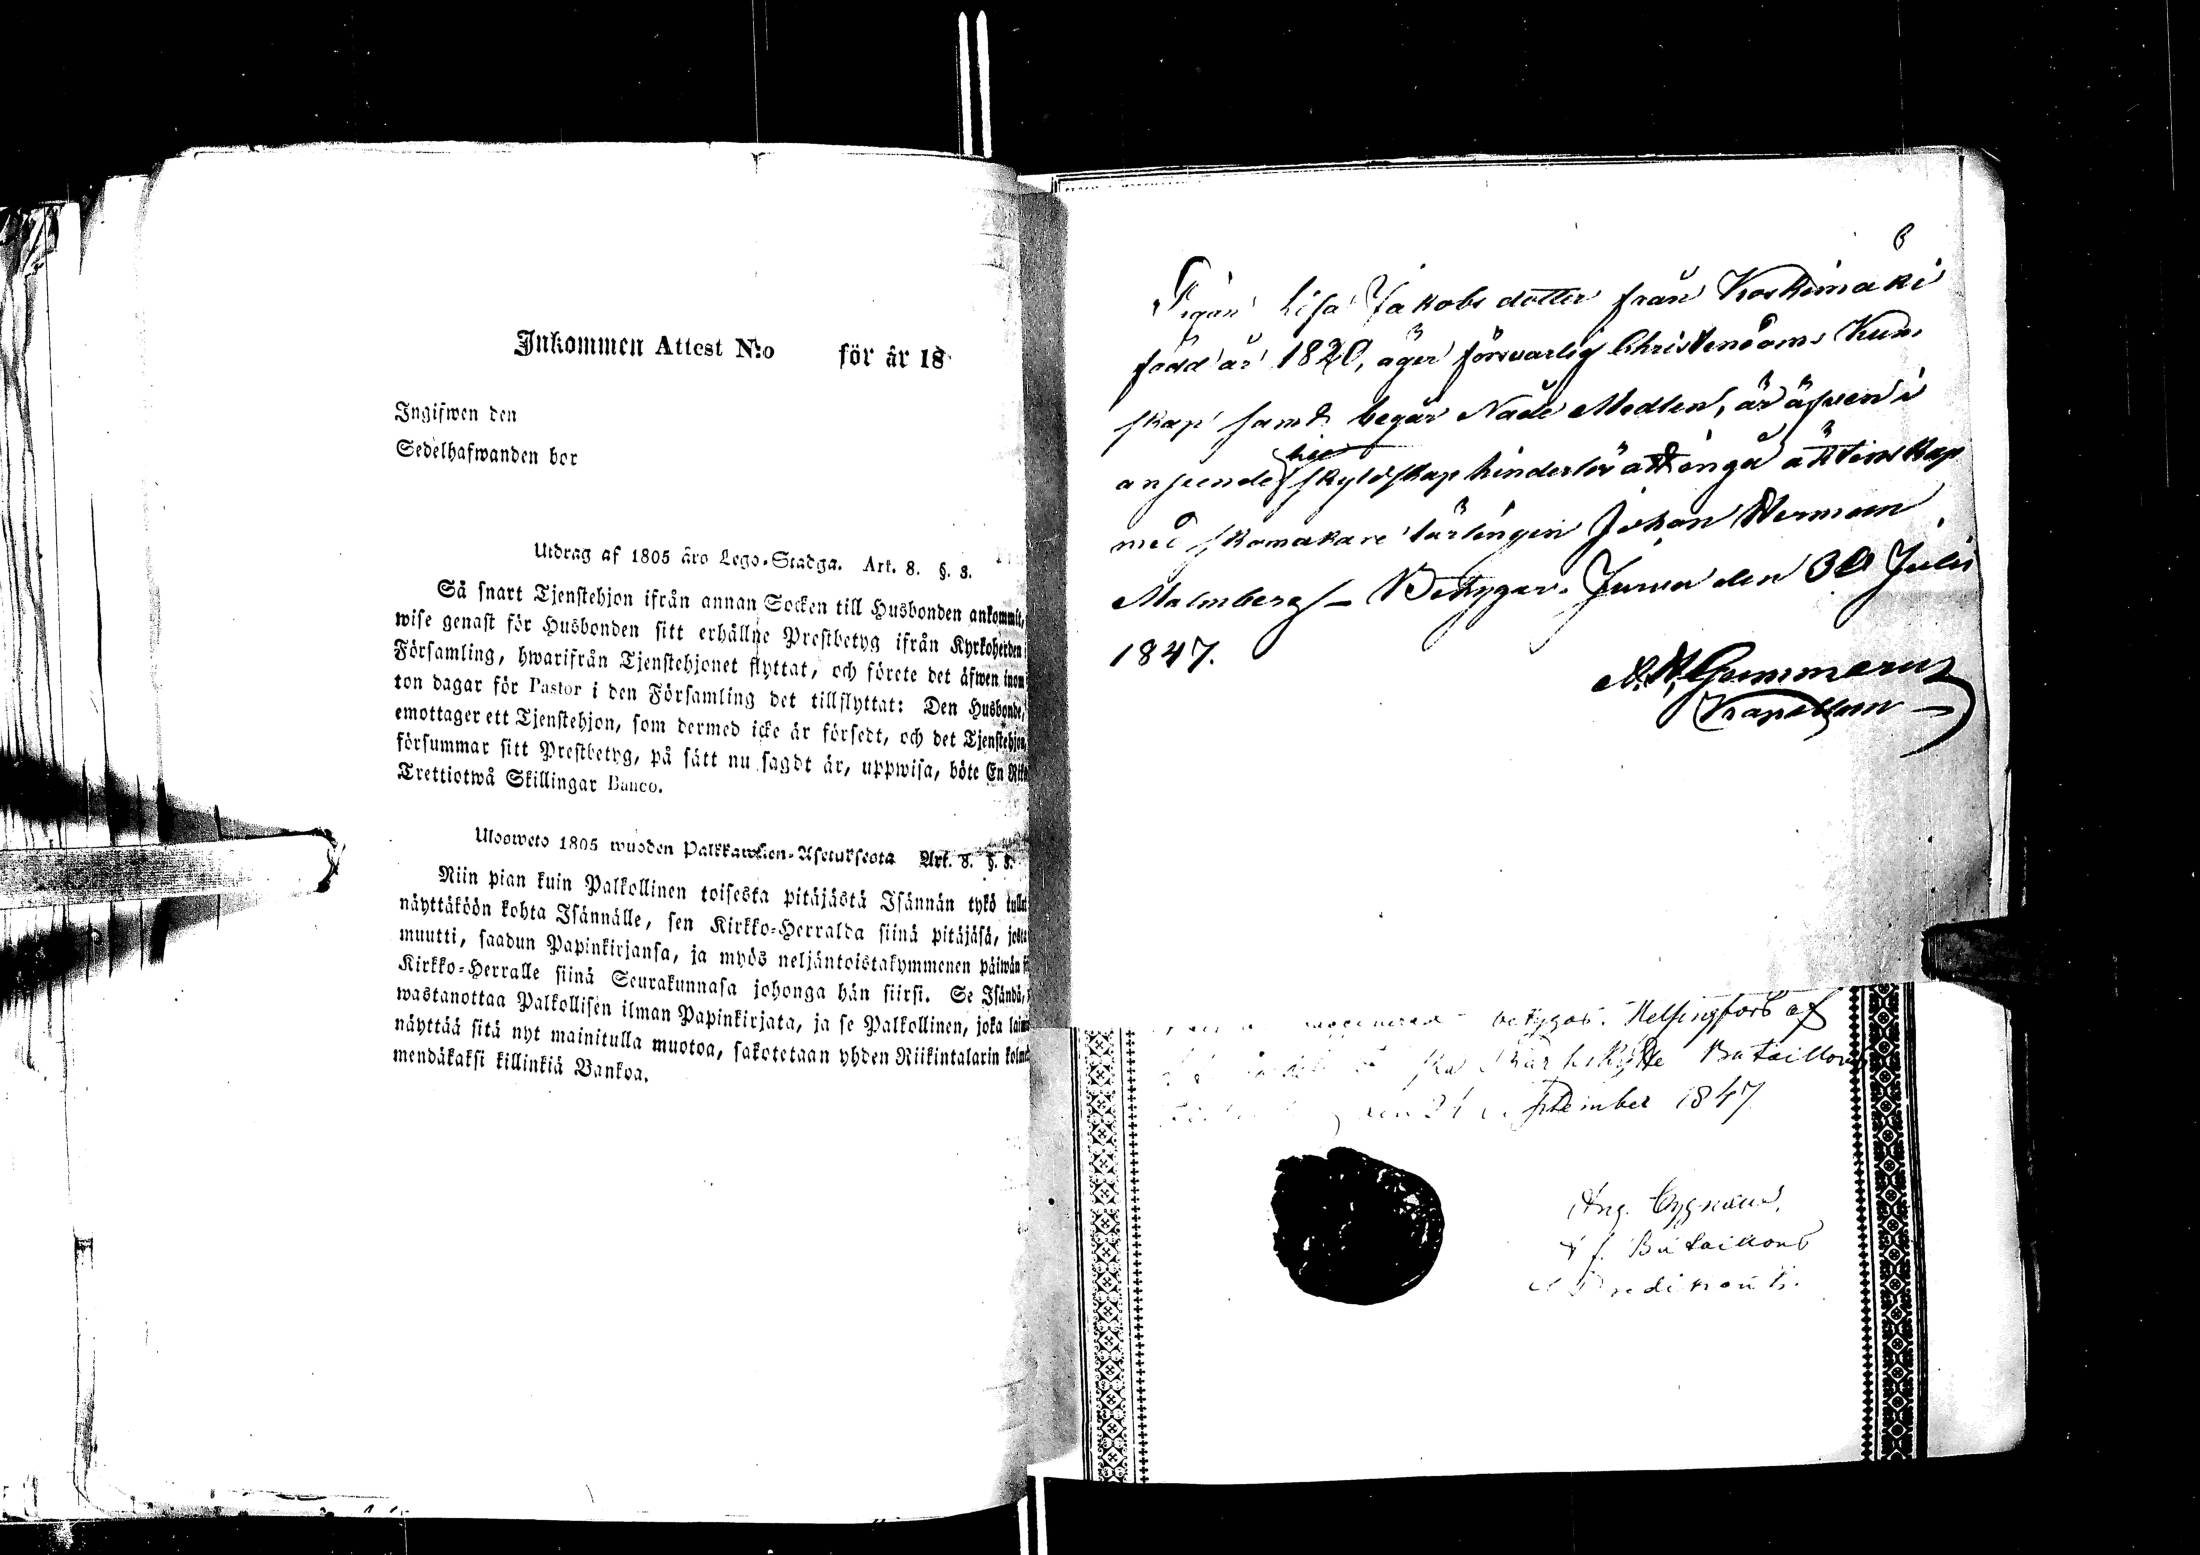 Inkommen Attest N:o för år 18
Ingifwen den
Sedelhafwanden bor
Utdrag af 1805 års Lego-Stadga. Art. 8. §. 3.
Så snart Tjenstehjon ifrån annan Socken till Husbonden ankommit,
wise genast för Husbonden sitt erhållne Prestbetyg ifrån Kyrkoherden
Församling, hwarifrån Tjenstehjonet flyttat, och förete det äfwen inom
ton dagar för Pastor i den Församling det tillflyttat: Den Husbonde,
emottager ett Tjenstehjon, som dermed icke är försedt, och det Tjenstehjon,
försummar sitt Prestbetyg, på sätt nu sagdt är, uppwisa, böte En Riks
Trettiotwå Skillingar Banco.
Ulosweto 1805 wuoden Palkkawäen-Asetuksesta Art. 8. §. 3.
Niin pian kuin Palkollinen toisesta pitäjästä Isännän tykö tullut
näyttäköön kohta Isännälle, sen Kirkko-Herralda siinä pitäjäsä, josta
muutti, saadun Papinkirjansa, ja myös neljäntoistakymmenen päiwän
Kirkko-Herralle siinä Seurakunnasa johonga hän siirsi. Se Isändä,
wastanottaa Palkollisen ilman Papinkirjata, ja se Palkollinen, joka laimi
näyttää sitä nyt mainitulla muotoa, sakotetaan yhden Riikintalarin kolme
mendäkaksi killinkiä Bankoa.
6
Pigan Lisa Jakobsdotter från Koskimäki
född år 1820, äger försvarlig Christendoms Kun-
skap samt begår Nåde Medlen, är äfven i
anseende skyldskap hinderlös att ingå äktenskap
med skomakare lärlingen Johan Herman
Malmberg – Betygar. Jurva den 30 Julii
1847.
Gummerus
Kapellan
betygas. Helsingfors af
Skarpskytte Bataillons
den 21 September 1847
Aug. Cygnæus,
t. f. Bataillons
Predikant.